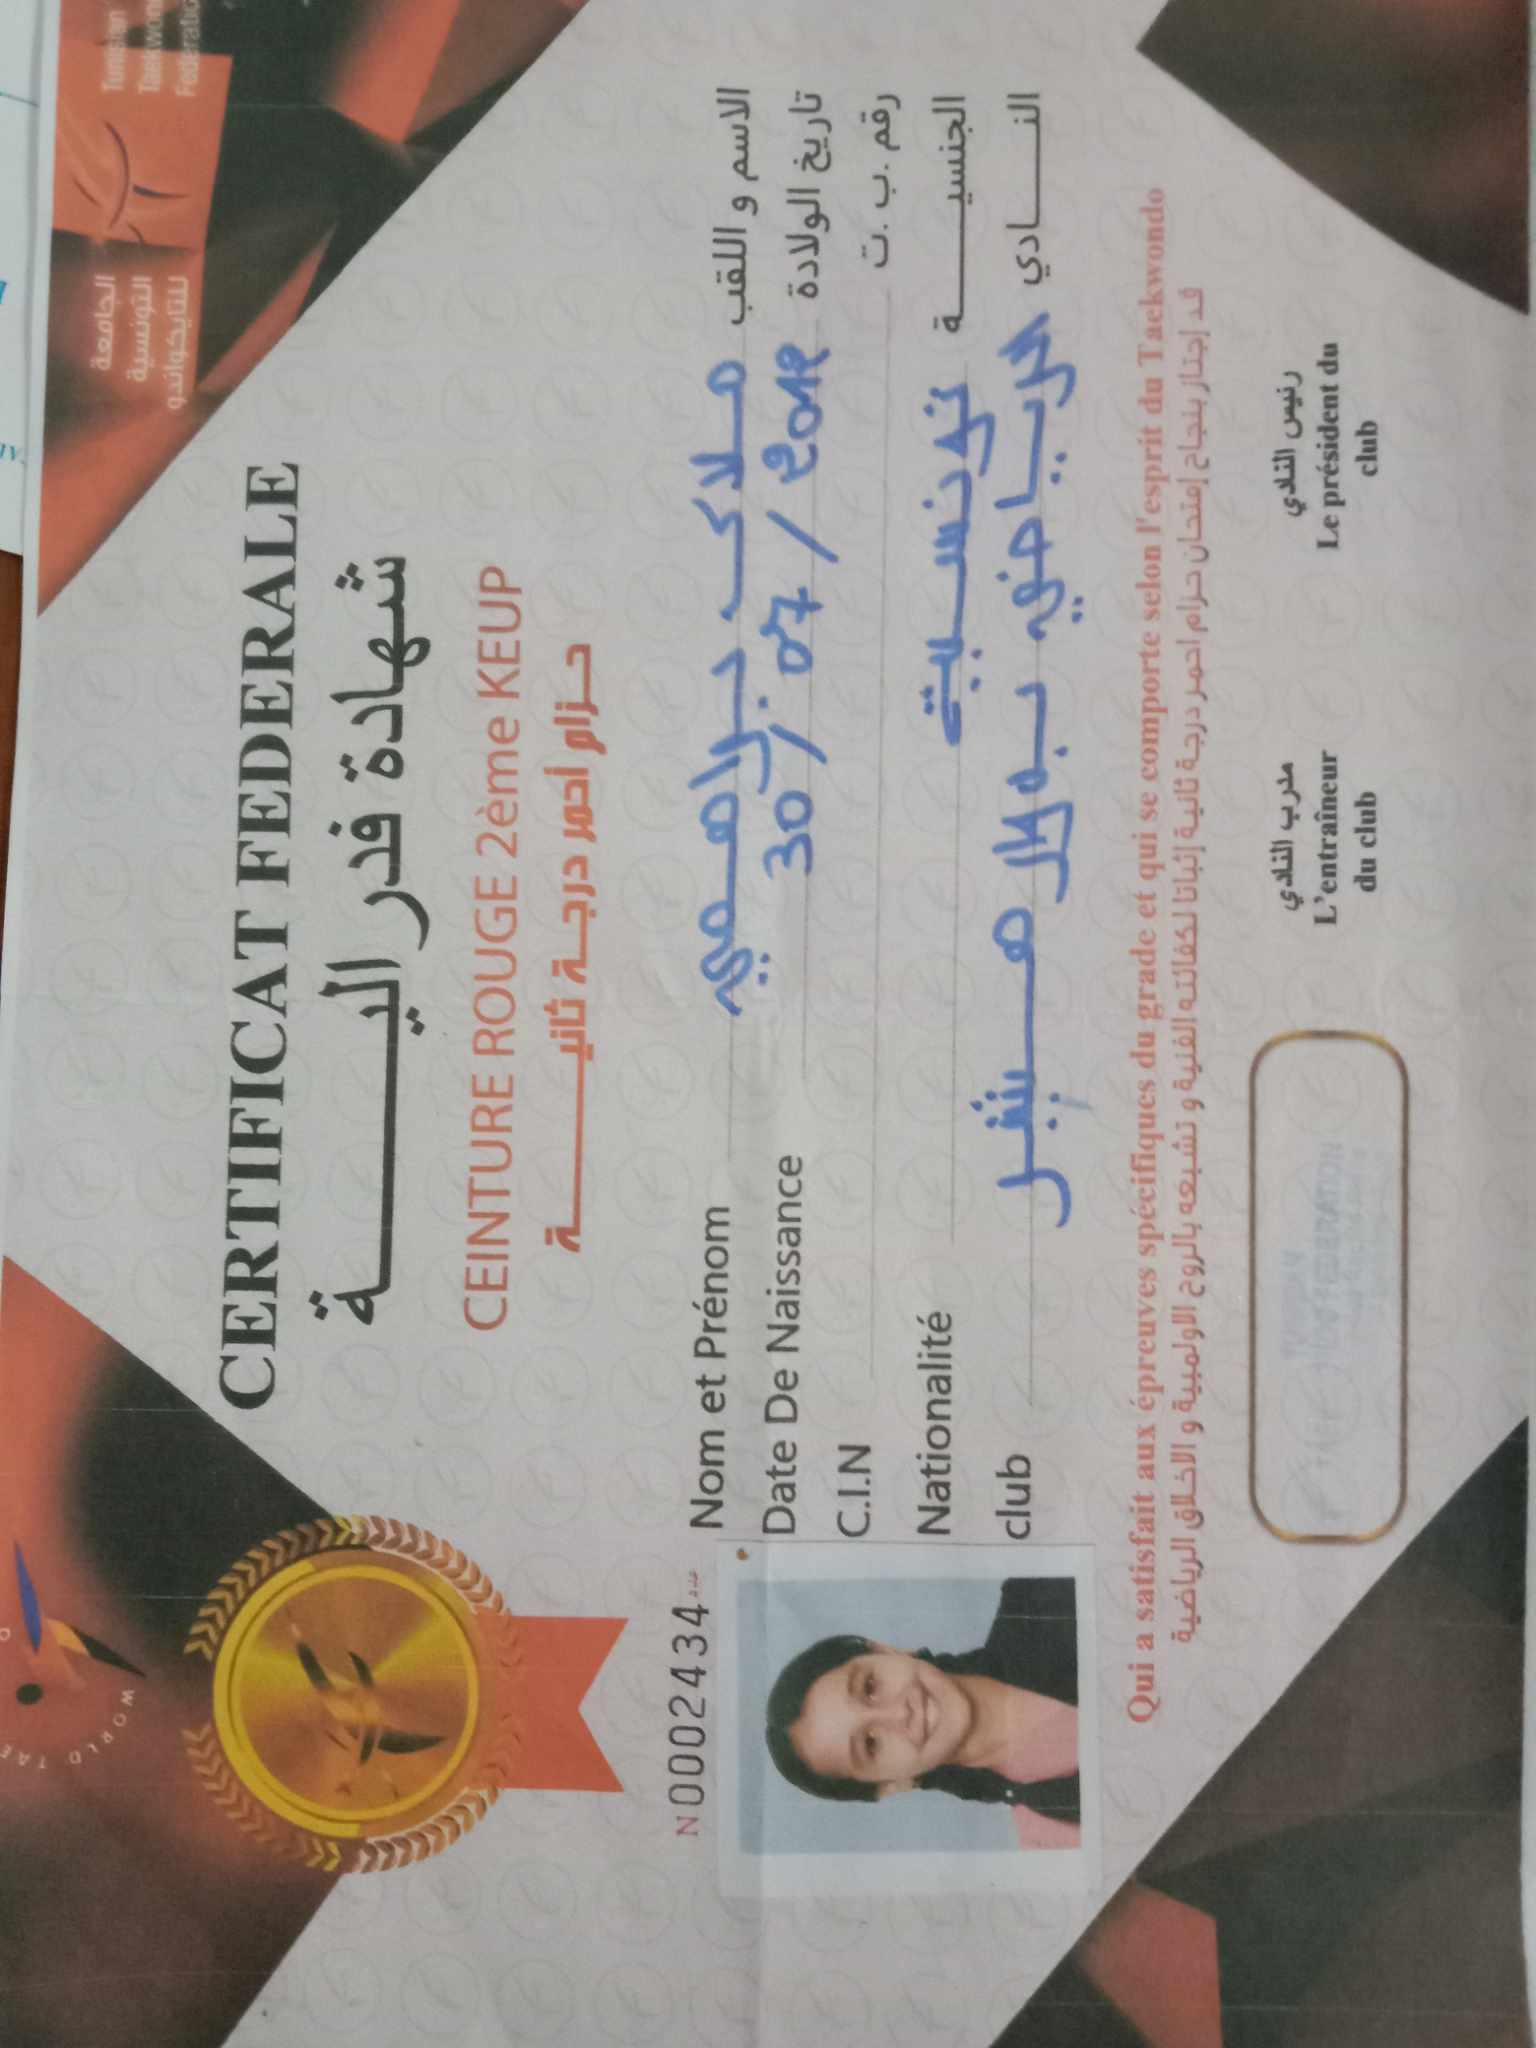 WORLD TAE
الجامعة
التونسية
للتايكواندو
Tunisian
Taekwon
Federatio
CERTIFICAT FEDERALE
شهادة فدراليـــــة
CEINTURE ROUGE 2ème KEUP
حـزام أحمر درجـة ثانيـــــة
N0002434
Nom et Prénom ملاك الاسم و اللقب
Date De Naissance 30/07/2012 تاريخ الولادة
C.I.N رقم .ب .ت
Nationalité تونسية الجنسيـــة
club النـــادي
Qui a satisfait aux épreuves spécifiques du grade et qui se comporte selon l'esprit du Taekwondo
قد إجتاز بنجاح إمتحان حزام احمر درجة ثانية إثباتا لكفائته الفنية و تشبعه بالروح الاولمبية و الاخلاق الرياضية
FEDERATION
مدرب النادي
L'entraîneur
du club
رئيس النادي
Le président du
club